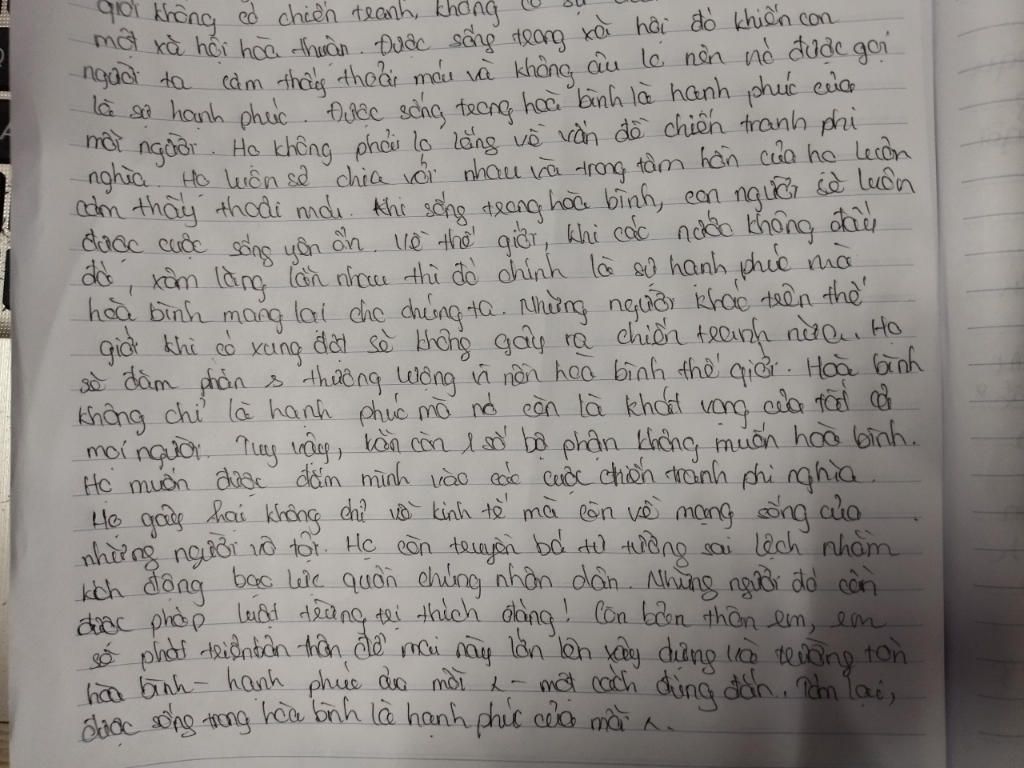 giới không có chiến tranh, không có sự
một xã hội hoà thuận. Được sống trong xã hội đó khiến con
người ta cảm thấy thoải mái và không âu lo nên nó được gọi
là sự hạnh phúc. Được sống trong hoà bình là hạnh phúc của
mỗi người. Họ không phải lo lắng về vấn đề chiến tranh phi
nghĩa. Họ luôn sẻ chia với nhau và trong tâm hồn của họ luôn
cảm thấy thoải mái. Khi sống trong hoà bình, con người sẽ luôn
được cuộc sống yên ổn. Về thế giới, khi các nước không đấu
đá, xâm lăng lẫn nhau thì đó chính là sự hạnh phúc mà
hoà bình mang lại cho chúng ta. Những người khác trên thế
giới khi có xung đột sẽ không gây ra chiến tranh nữa. Họ
sẽ đàm phán thương lượng vì nền hoà bình thế giới. Hoà bình
không chỉ là hạnh phúc mà nó còn là khát vọng của tất cả
mọi người. Tuy vậy, vẫn còn 1 số bộ phận không muốn hoà bình.
Họ muốn được đắm mình vào các cuộc chiến tranh phi nghĩa.
Họ gây hại không chỉ về kinh tế mà còn về mạng sống của
những người vô tội. Họ còn truyền bá tư tưởng sai lệch nhằm
kích động bạo lực quần chúng nhân dân. Những người đó cần
được pháp luật trừng trị thích đáng! Còn bản thân em, em
sẽ phát triển bản thân để mai này lớn lên xây dựng và trường tồn
hòa bình – hạnh phúc của mỗi – một cách đúng đắn. Tóm lại,
được sống trong hòa bình là hạnh phúc của mỗi